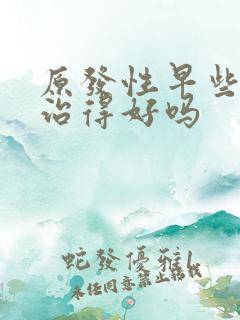 原發性早些
治得好吗
蛇發優雅
未经同意禁止转载